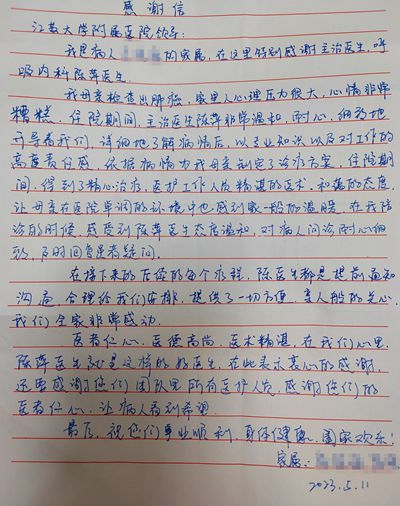 感谢信
江苏大学附属医院领导:
我是病人 的家属,在这里特别感谢主治医生,呼
吸内科陈萍医生。
我母亲检查出肺癌,家里人心理压力很大,心情非常
糟糕,住院期间,主治医生陈萍非常温和,耐心,细致地
开导着我们,详细地了解病情后,以专业知识以及对工作的
高度责任感,依据病情为我母亲制定了治疗方案,住院期
间,得到了精心治疗,医护工作人员精湛的医术,和蔼的态度,
让母亲在医院单调的环境中也感到家一般的温暖。在我陪
诊的时候,感受到陈萍医生态度温和,对病人问诊耐心细
致,及时回复患者疑问。
在接下来的后续的每个疗程,陈医生都是提前通知
沟通,合理给我们安排,提供了一切方便,亲人般的关心,
我们全家非常感动。
医者仁心,医德高尚,医术精湛,在我们心里,
陈萍医生就是这样的好医生,在此表示衷心的感谢,
还要感谢您们团队里所有医护人员,感谢您们的
医者仁心,让病人看到希望。
最后,祝您们事业顺利,身体健康,阖家欢乐!
家属:
2023.5.11